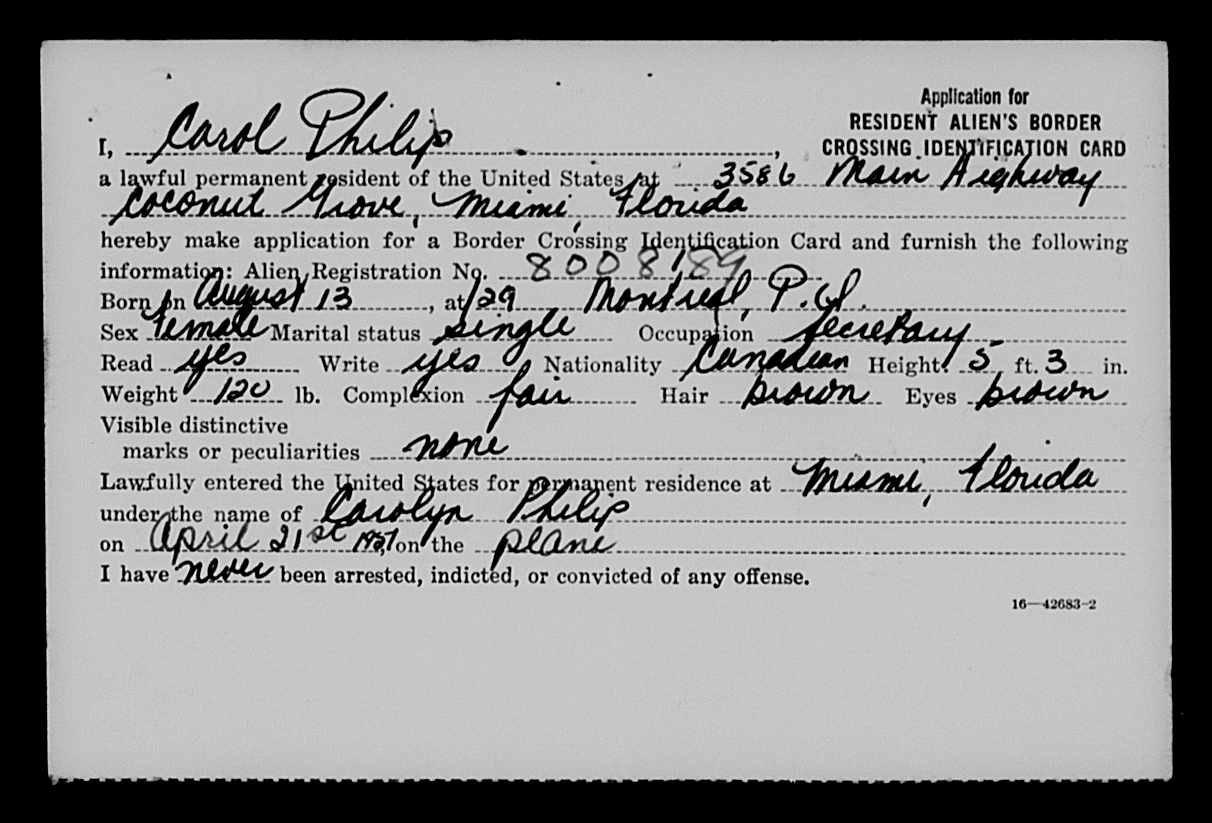 Application for
RESIDENT ALIEN'S BORDER
CROSSING IDENTIFICATION CARD
I, Carol Philip,
a lawful permanent resident of the United States at 3586 Main Highway
Coconut Grove, Miami, Florida
hereby make application for a Border Crossing Identification Card and furnish the following
information: Alien Registration No. 8008189
Born in August 13, at /29 Montreal, P.Q.
Sex Female Marital status single Occupation Secretary
Read yes Write yes Nationality Canadian Height 5 ft. 3 in.
Weight 120 lb. Complexion fair Hair brown Eyes brown
Visible distinctive
marks or peculiarities none
Lawfully entered the United States for permanent residence at Miami, Florida
under the name of Carolyn Philip
on April 21st 1957 on the plane
I have never been arrested, indicted, or convicted of any offense.
16—42683-2